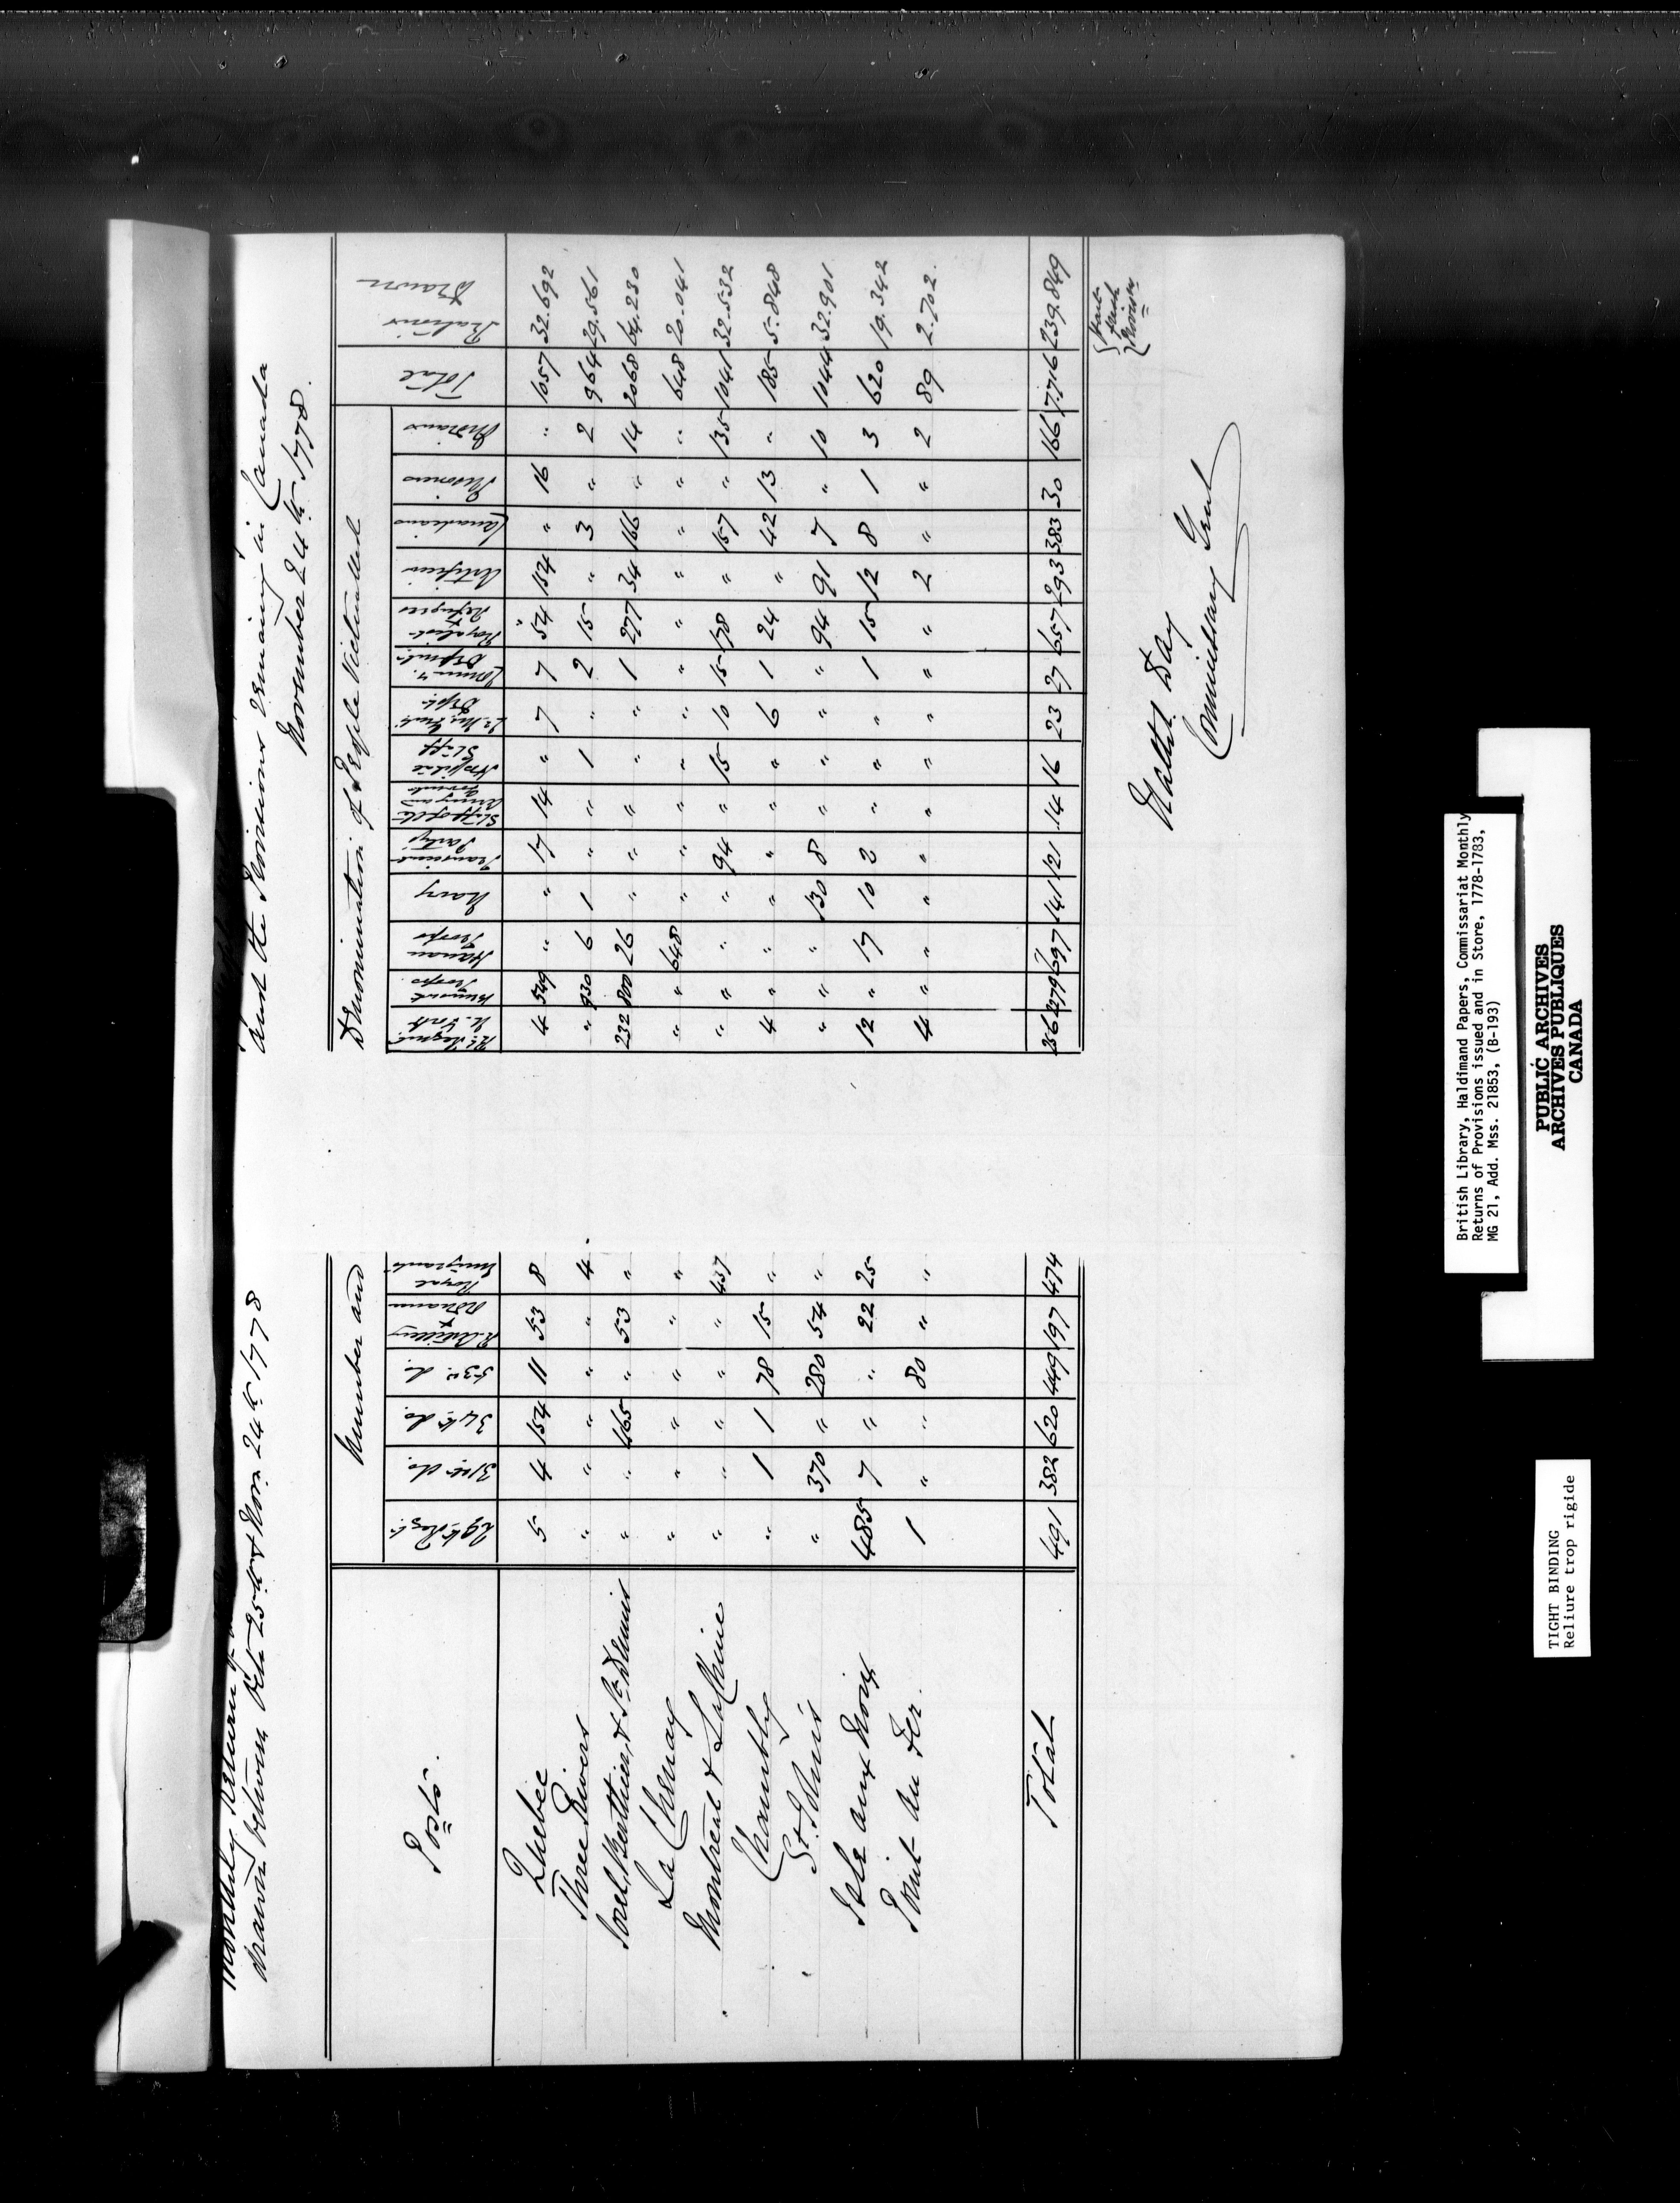 Monthly Return of
drawn between Octr. 25th & Novr. 24th 1778
and the Provisions remaining in Canada
November 24th 1778.
Number and Denomination of People Victualled
Posts. | 29th Regt. | 31st do. | 34th do. | 53d. do. | R. Artillery & Ordnance | Royal Emigrants | Rt. Regmt. N. York | Brunswk Troops | Hanau Troops | Navy | Transient Party | Staff of the Army and | Hospital Staff | Qr. Mr. Genls. Dept. | Commy. Departmt. | Royalist & Refugees | Artificers | Canadians | Prisoners | Indians | Total | Rations Drawn
Quebec | 5 | 4 | 154 | 11 | 53 | 8 | 4 | 549 | " | " | 17 | 14 | " | 7 | 7 | 54 | 154 | " | 16 | " | 1057 | 32.692
Three Rivers | " | " | " | " | " | 4 | " | 930 | 6 | 1 | " | " | 1 | " | 2 | 15 | " | 3 | " | 2 | 964 | 29.561
Sorel, Berthier, & St. Dennis | " | " | 465 | " | 53 | " | 232 | 800 | 26 | " | " | " | " | " | 1 | 277 | 34 | 166 | " | 14 | 2068 | 64.230
La Chenay | " | " | " | " | " | " | " | " | 648 | " | " | " | " | " | " | " | " | " | " | " | 648 | 20.041
Montreal & LaChine | " | " | " | " | " | 437 | " | " | " | " | 94 | " | 15 | 10 | 15 | 178 | " | 157 | " | 135 | 1041 | 32.532
Chambly | " | 1 | 1 | 78 | 15 | " | 4 | " | " | " | " | " | " | 6 | 1 | 24 | " | 42 | 13 | " | 185 | 5.848
St. Johns | " | 370 | " | 280 | 54 | " | " | " | " | 130 | 8 | " | " | " | " | 94 | 91 | 7 | " | 10 | 1044 | 32.901
Isle aux Noix | 485 | 7 | " | " | 22 | 25 | 12 | " | 17 | 10 | 2 | " | " | " | 1 | 15 | 12 | 8 | 1 | 3 | 620 | 19.342
Point au Fer. | 1 | " | " | 80 | " | " | 4 | " | " | " | " | " | " | " | " | " | 2 | " | " | 2 | 89 | 2.702.
Total | 491 | 382 | 620 | 449 | 197 | 474 | 256 | 2279 | 697 | 141 | 121 | 14 | 16 | 23 | 27 | 657 | 293 | 383 | 30 | 166 | 7.716 | 239.849
Nathl. Day
Commissary Genl.
British Library, Haldimand Papers, Commissariat Monthly
Returns of Provisions issued and in Store, 1778-1783,
MG 21, Add. Mss. 21853, (B-193)
PUBLIC ARCHIVES
ARCHIVES PUBLIQUES
CANADA
TIGHT BINDING
Reliure trop rigide